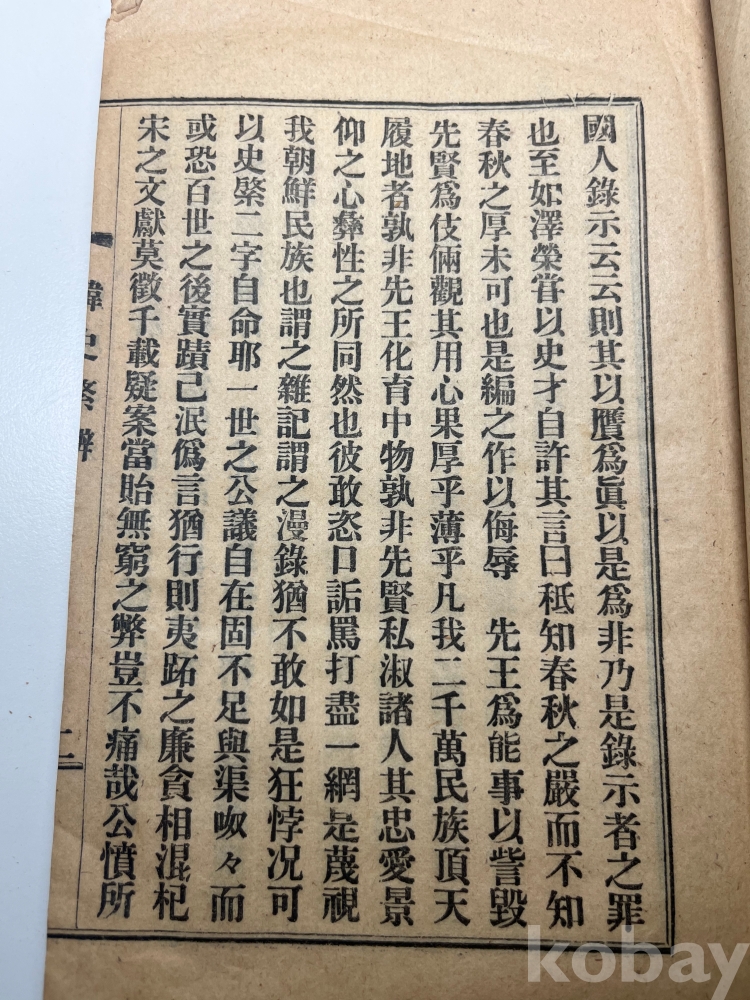 國人錄示云云則其以贋爲眞以是爲非乃是錄示者之罪
也至如澤榮甞以史才自許其言曰秪知春秋之嚴而不知
春秋之厚未可也是編之作以侮辱　先王爲能事以訾毁
先賢爲伎倆觀其用心果厚乎薄乎凡我二千萬民族頂天
履地者孰非先王化育中物孰非先賢私淑諸人其忠愛景
仰之心彜性之所同然也彼敢恣口詬罵打盡一網是蔑視
我朝鮮民族也謂之雜記謂之漫錄猶不敢如是狂悖况可
以史綮二字自命耶一世之公議自在固不足與渠呶々而
或恐百世之後實蹟已泯僞言猶行則夷跖之廉貪相混杞
宋之文獻莫徵千載疑案當貽無窮之弊豈不痛哉公憤所
韓史綮辨
二
kobay